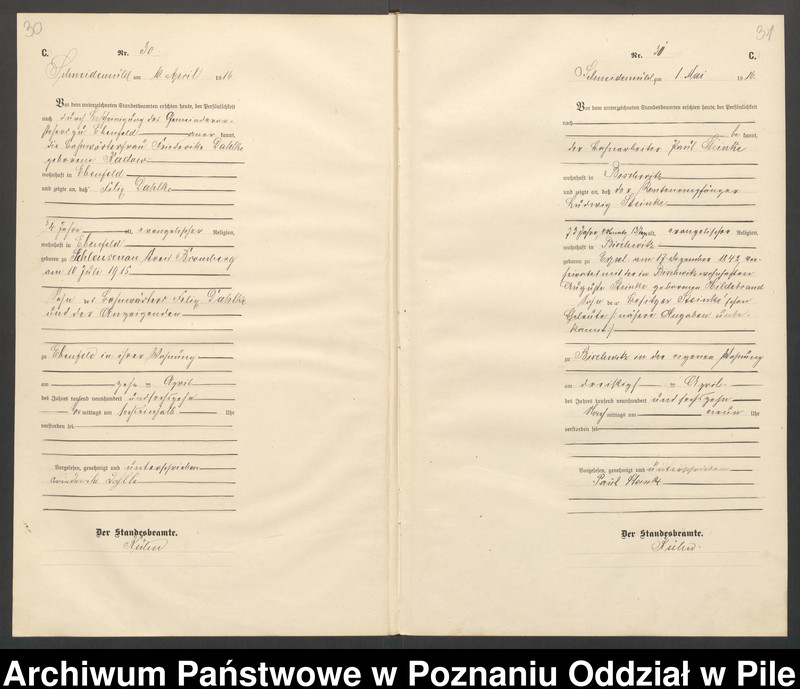 30
C.
Nr. 30
Schneidemühl am 10 April 1916
Vor dem unterzeichneten Standesbeamten erschien heute, der Persönlichkeit
nach durch Bescheinigung des Gemeindevor-
stehers zu Ebenfeld anerkannt,
die Bahnwärterfrau Friederike Dahlke
geborene Radaw
wohnhaft in Ebenfeld
und zeigte an, daß Felix Dahlke
3/4 Jahre alt, evangelischer Religion,
wohnhaft in Ebenfeld
geboren zu Schleusenau Kreis Bromberg
am 10 Juli 1915
Sohn des Bahnwärter Felix Dahlke
und der Anzeigenden
zu Ebenfeld in ihrer Wohnung
am zehn = April
des Jahres tausend neunhundert und sechszehn
mittags um Uhr
verstorben sei
Vorgelesen, genehmigt und unterschrieben
Der Standesbeamte.
Kühn
31
Nr. 31
C.
Schneidemühl am 1. Mai 1916.
Vor dem unterzeichneten Standesbeamten erschien heute, der Persönlichkeit
nach
be kannt,
der Bahnarbeiter Paul Steinke
wohnhaft in
und zeigte an, daß der Rentenempfänger
Ludwig Steinke
73 Jahre, alt, evangelischer Religion,
wohnhaft in
geboren zu am 17 Dezember 1842, ver-
heiratet mit der in wohnhaften
Auguste Steinke geborenen Hildebrand
Sohn der Besitzer Steinke'schen
Eheleute (nähere Angaben unbe-
kannt)
zu in der eigenen Wohnung
am dreißigst = April
des Jahres tausend neunhundert und sechszehn
Nach mittags um neun Uhr
verstorben sei
Vorgelesen, genehmigt und unterschrieben
Paul Steinke
Der Standesbeamte.
Kühn.
Archiwum Państwowe w Poznaniu Oddział w Pile